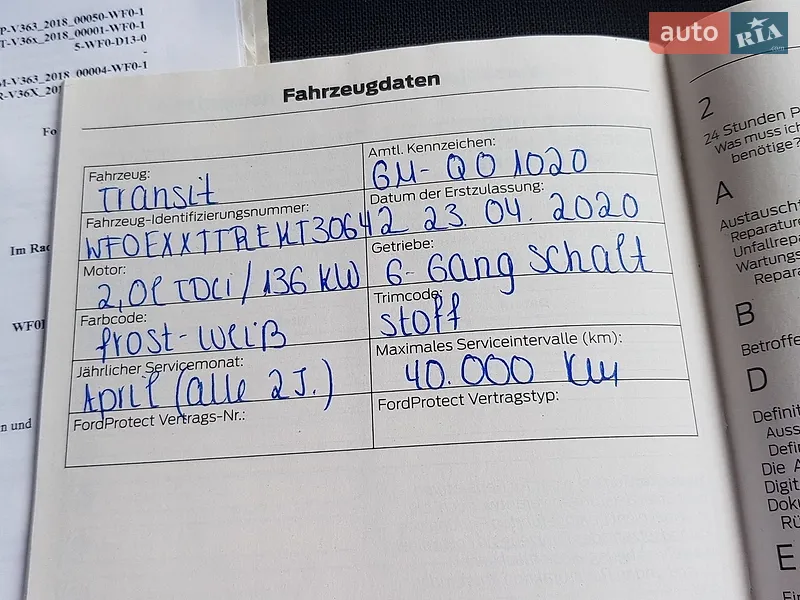 P-V363_2018_00050-WF0-1
T-V36x_2018_00001-WF0-1
5-WF0-D13-0
M-V363_2018_00004-WF0-1
R-V36X_201
Fo
Im Rac
WF0I
n und
auto RIA
.com
Fahrzeugdaten
Fahrzeug:
Transit
Amtl. Kennzeichen:
GM-QO 1020
Fahrzeug-Identifizierungsnummer:
WF0EXXTTREKT30642
Datum der Erstzulassung:
23.04.2020
Motor:
2,0l TDCi/136 KW
Getriebe:
6-Gang schalt
Farbcode:
frost-weiß
Trimcode:
stoff
Jährlicher Servicemonat:
April (alle 2 J.)
Maximales Serviceintervalle (km):
40.000 km
FordProtect Vertrags-Nr.:
FordProtect Vertragstyp:
2
24 Stunden P
Was muss ich
benötige?
A
Austausch
Reparature
Unfallrepa
Wartungs
Repara
B
Betroffe
D
Definit
Auss
Defin
Die A
Digit
Doku
Rü
E
Ein